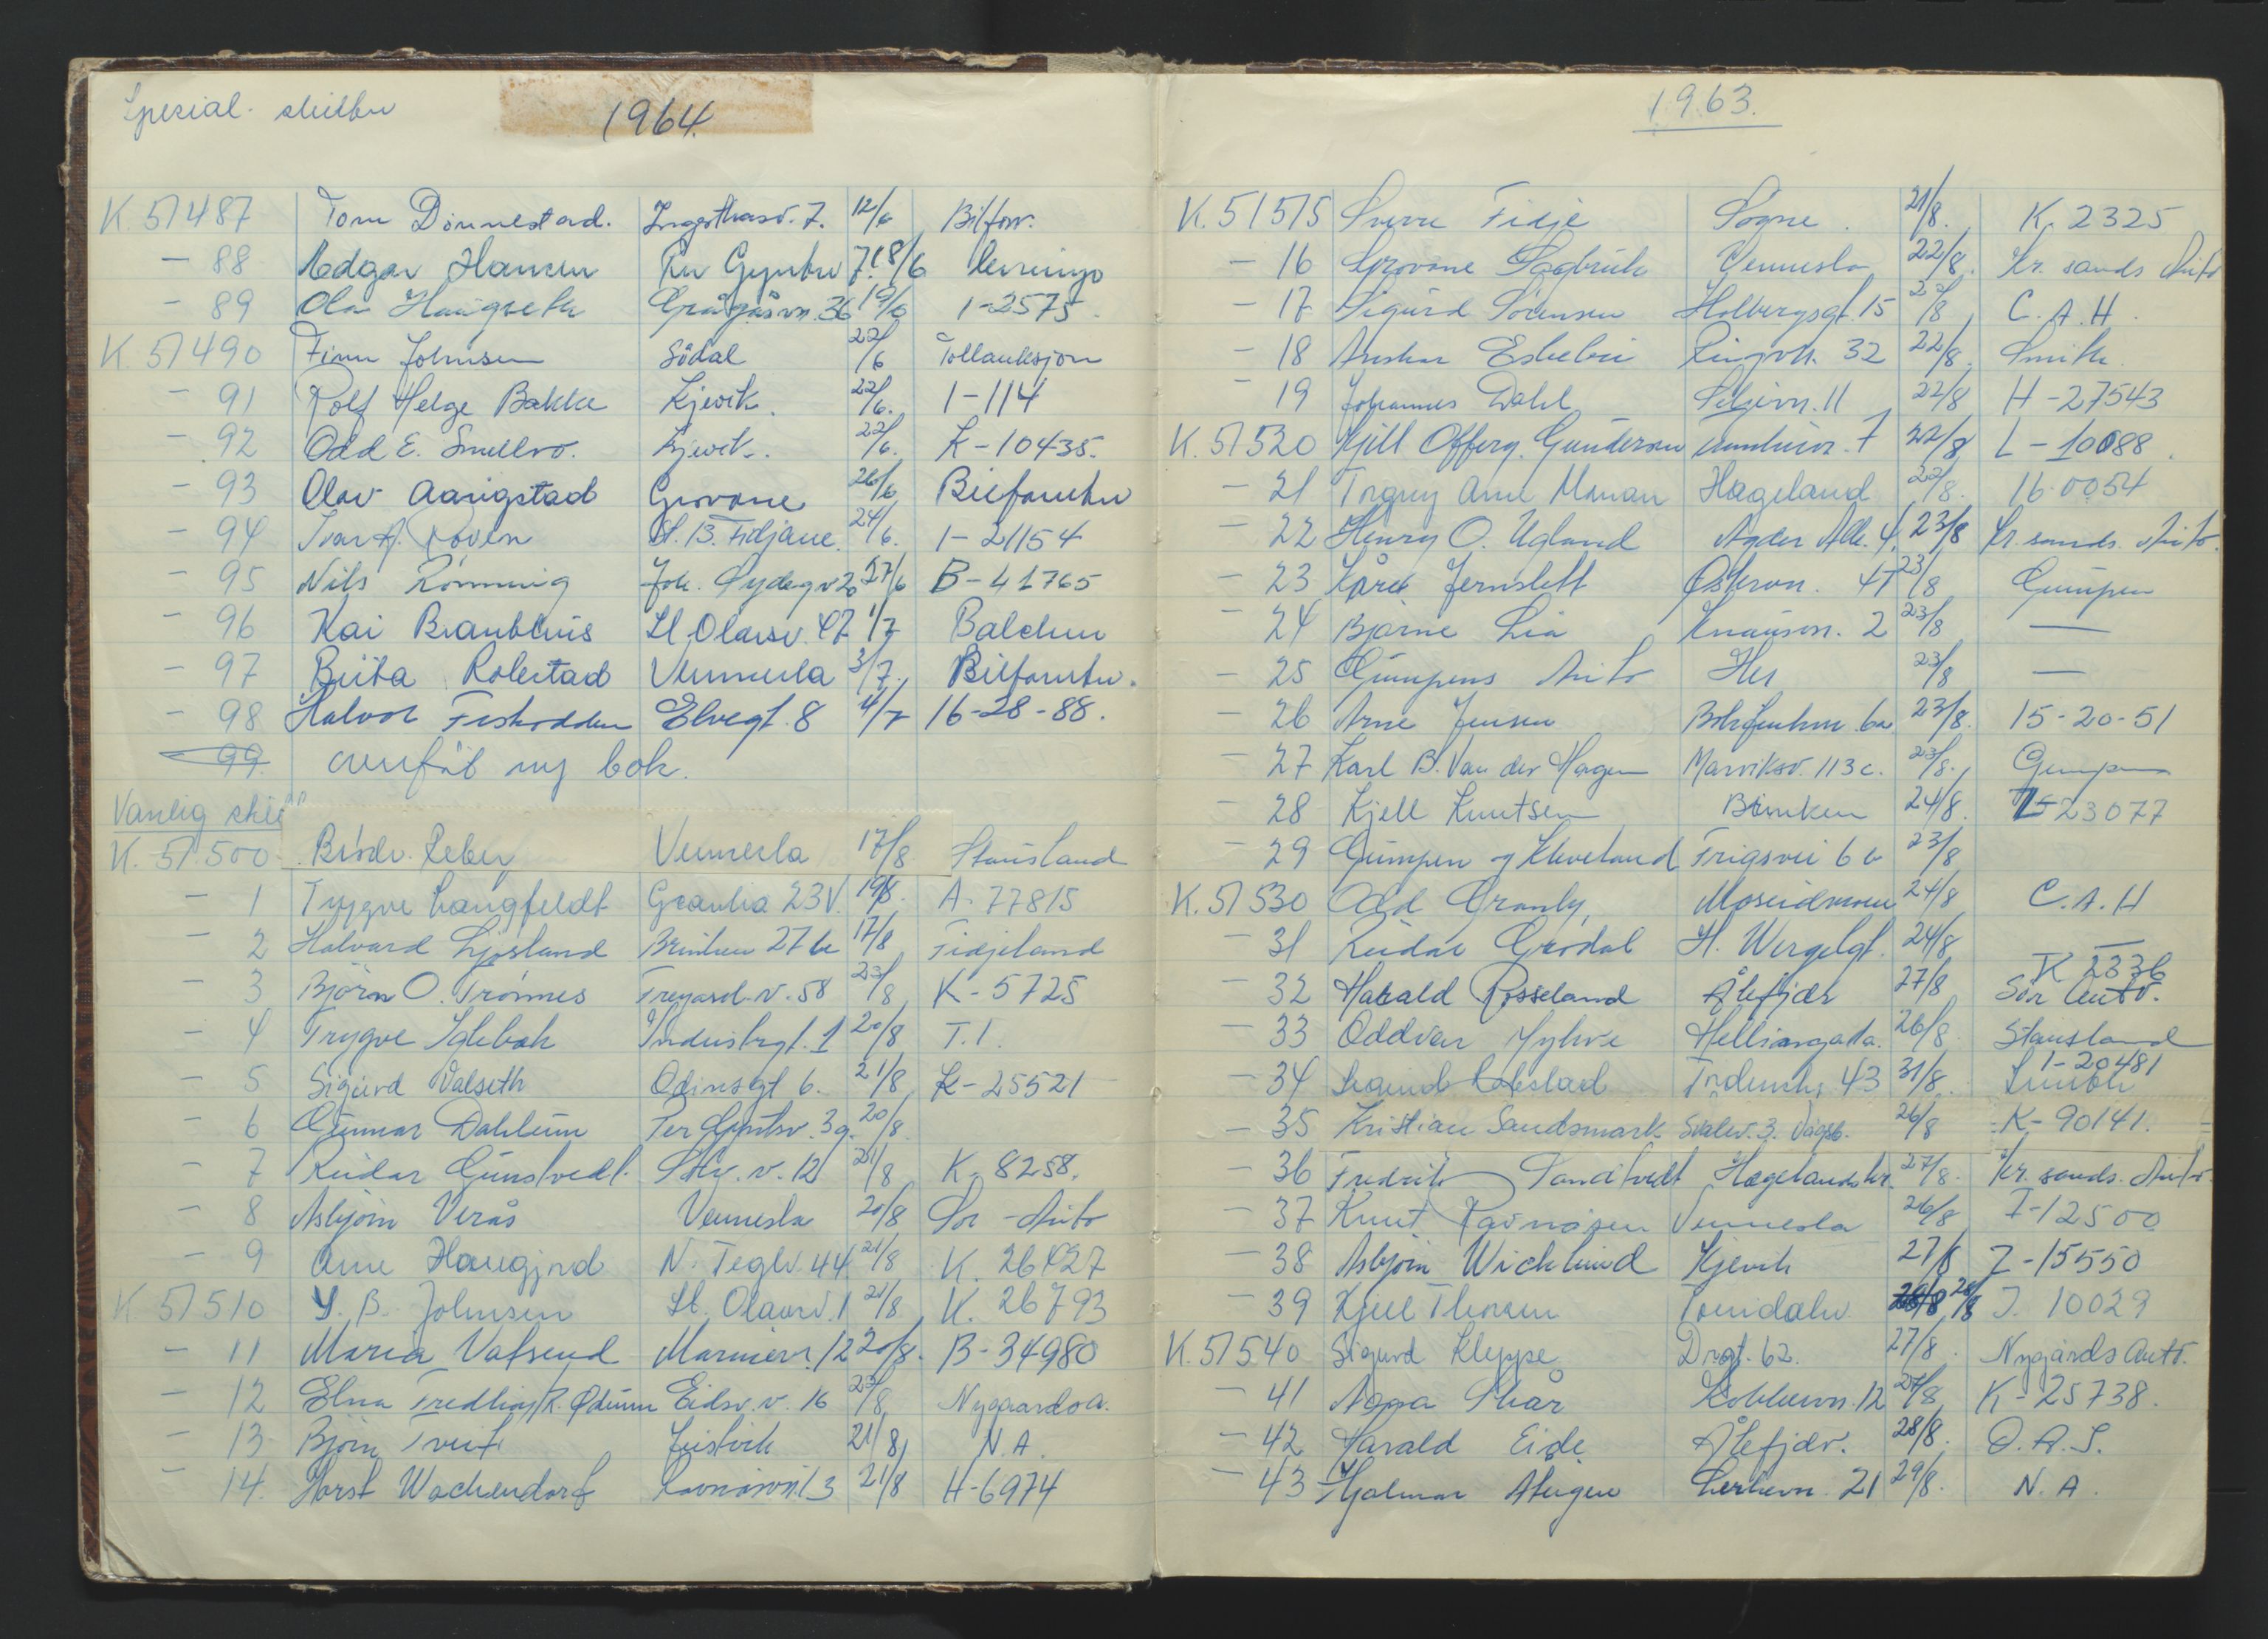 Spesial. skilter
1964.
K. 51487 Tom Dønnestad. 7. 12/6 Bilforr.
- 88 Edgar Hansen Per Gyntsv 7. 18/6
- 89 Ola Haugseth Grågåsvn. 36 19/6 1-2575.
K. 51490 Finn Johnsen Södal 22/6 Tollauksjon
- 91 Rolf Helge Bakke Kjevik. 22/6. 1-114
- 92 Odd E. Kjevik. 22/6. K-10435.
- 93 Olav Aarigstad Grovane 26/6 Bilforretn
- 94 Ivar A. Roven St. B. Fidjane. 24/6. 1-21154
- 95 Nils Rönning Joh. 27/6 B-41765
- 96 Kai St. Olavsv. 1/7
- 97 Robstad Vennesla 3/7. Bilforretn.
- 98 Halvor Fiskodden Elvegt. 8 4/7 16-28-88.
99. ny bok.
Vanlig
K. 51500 Brödr. Reber Vennesla 17/8 Stausland
- 1 Trygve Langfeldt Grantia 23V. 19/8. A. 77815
- 2 Halvard Ljosland 27 17/8 Fidjeland
- 3 Björn O. Trönnes v. 58 23/8 K-5725
- 4 Trygve Iglebæk Industrigt. 1 20/8 T.1.
- 5 Sigurd Valseth Odinsgt 6. 21/8 K-25521
- 6 Gunnar Dahlum Per Gyntsv. 3g. 20/8
- 7 Reidar Gunstvedt. Solv. v. 12 21/8 K. 8258.
- 8 Asbjørn Verås Vennesla 20/8 Sør-Auto
- 9 Arne Haugjord N. Teglv. 44. 21/8 K. 26427
K 51510 S. B. Johnsen St. Olavsv. 1 21/8 K. 26793
- 11 Maria Vatsend Mariervn. 12 20/8. B-34980
- 12 Elna Fredhøy/R. Ødum Eidsv. v. 16 23/8 Nygaards a.
- 13 Björn Tveit Justvik 21/8 N.A.
- 14. Horst Wachendorf Ravnåsvn. 13 21/8 H-6974
1963.
K. 51515 Sverre Fidje Søgne. 21/8. K. 2325
- 16 Grovane Sagbruk Vennesla 22/8. Kr. sands Auto
- 17 Sigurd Sørensen Holbergsgt. 15 22/8 C.A.H.
- 18 Anskar Eskebu Ringvn. 32 22/8. Smith
- 19 Johannes Dahl Seljevn. 11 22/8 H-27543
K. 51520 Kjell Offerg. Gundersen 7 22/8 L-10088.
- 21 Torguy Arne Monan Hægeland 22/8. 16.00.54
- 22 Henry O. Ugland Agder Alle. 4. 23/8 Kr. sands. Auto.
- 23 Kåre Jernslett Østervn. 47 23/8 Gumpen
- 24 Bjarne Lia Knausvn. 2 23/8 —
- 25 Gumpens Auto Her 23/8 —
- 26 Arne Jensen 6a 23/8. 15-20-51
- 27 Karl B. Van der Hagen Marviksv. 113c. 23/8. Gumpen
- 28 Kjell Knutsen Brinken 24/8. 23077
- 29 Gumpen og Kleveland Frigsvei 6 23/8
K. 51530 Odd Granly, Moseidmoen 24/8 C.A.H
- 31 Reidar Grödal H. Wergelgt. 24/8 —
- 32 Harald Rosseland Ålefjær 27/8 K 2336 Sør Auto.
- 33 Oddvar Myhre Hellinsgata. 26/8 Stausland
- 34 Robstad 43 31/8. 1-20481
- 35 Kristian Sandsmark Svalev. 3. Vågsb. 26/8 K-90141.
- 36 Fredrik Hægelandskr. 27/8. Kr. sands. Auto
- 37 Knut Ravnåsen Vennesla 26/8 I-12500
- 38 Asbjörn Wicklund Kjevik 27/8 J-15550
- 39 Kjell Thorsen 28/8 J. 10029
K. 51540 Sigurd Kleppe Drgt. 62. 27/8. Nygårds Auto.
- 41 Skår 12 27/8 K-25738.
- 42 Harald Eide Ålefjær. 28/8. O.A.S.
- 43 Hjalmar Lerkevn. 21 29/8. N.A.